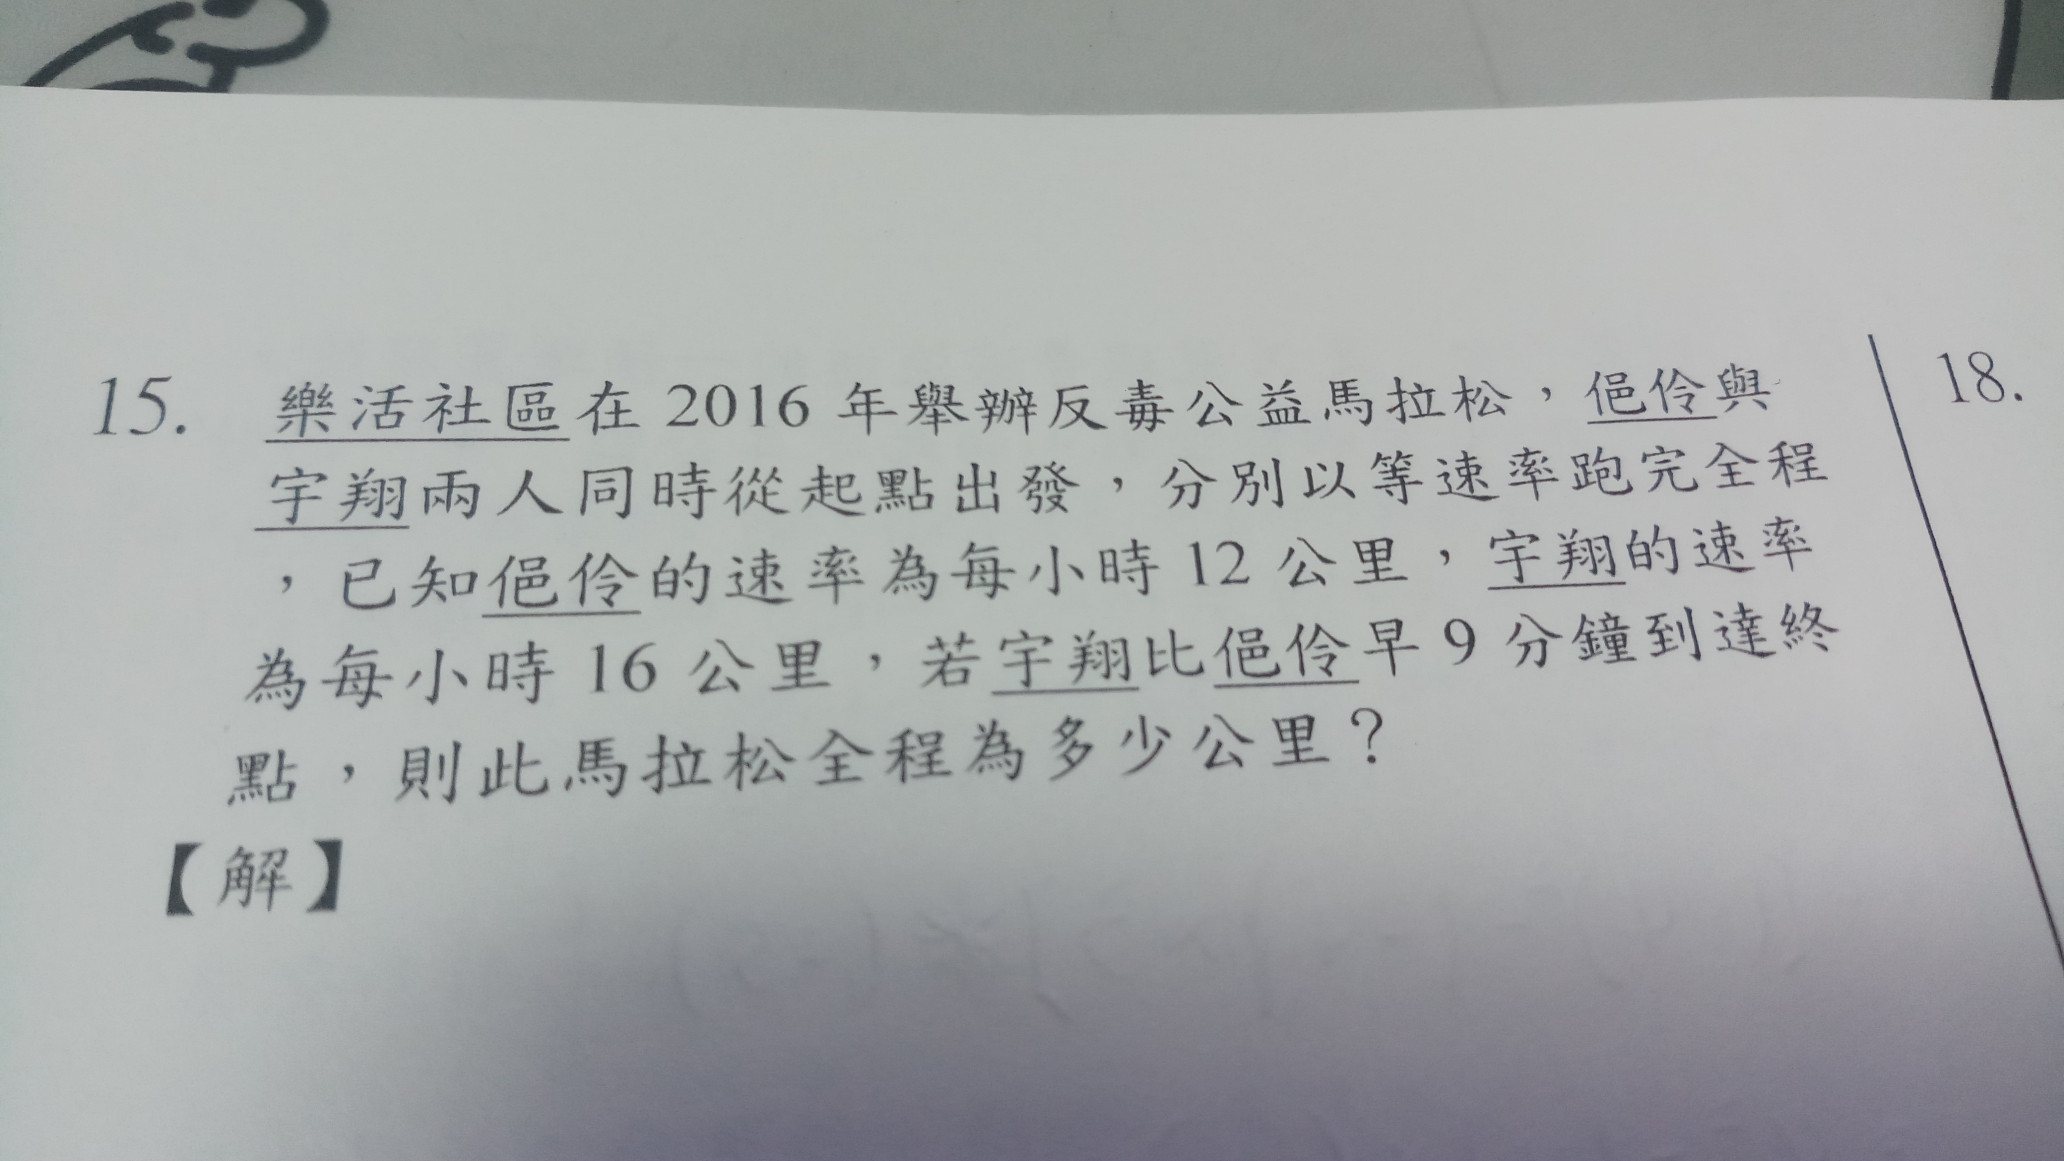 15. 樂活社區在 2016 年舉辦反毒公益馬拉松，俋伶與
宇翔兩人同時從起點出發，分別以等速率跑完全程
，已知俋伶的速率為每小時 12 公里，宇翔的速率
為每小時 16 公里，若宇翔比俋伶早 9 分鐘到達終
點，則此馬拉松全程為多少公里？
【解】
18.